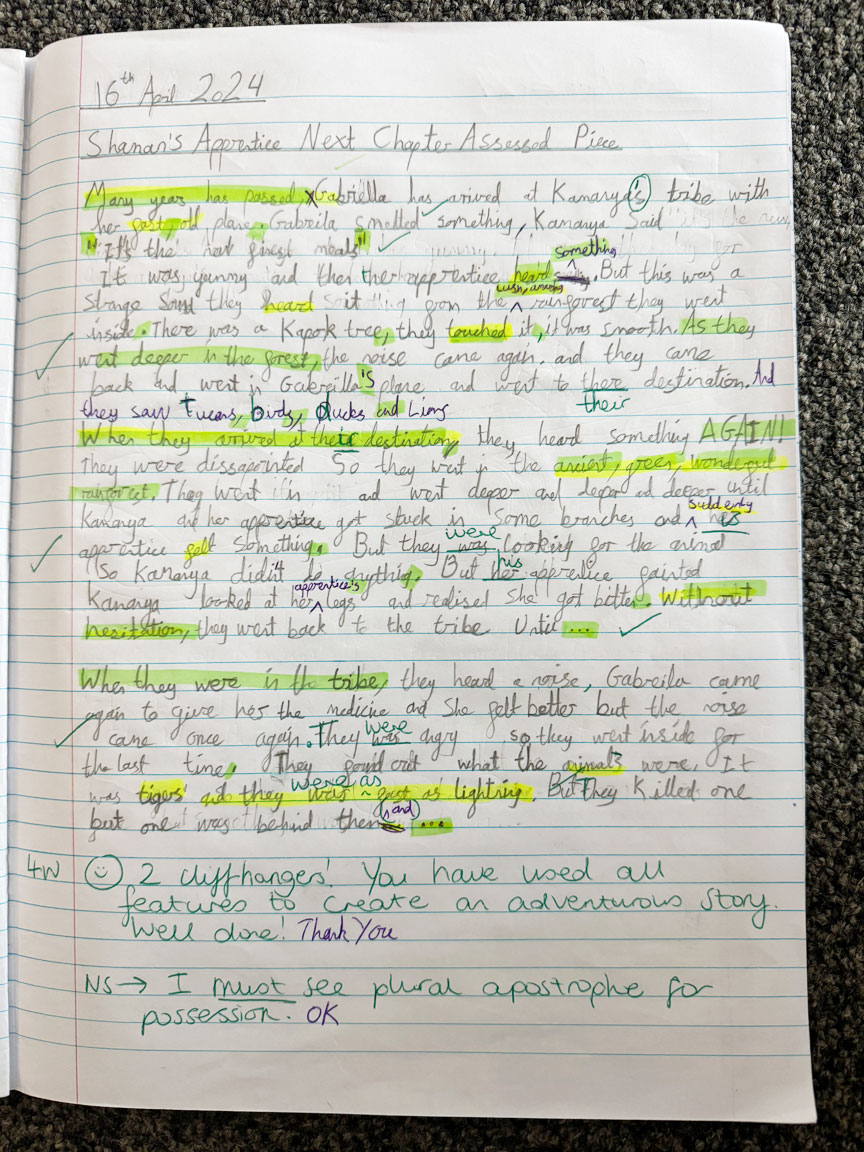 16th April 2024
Shaman's Apprentice Next Chapter Assessed Piece
Many years has passed, Gabriella has arrived at Kamanya's tribe with
her rusty old plane. Gabreila smelled something, Kamanya said
"It's the next finest meals"
something
It was yummy and then the apprentice heard. But this was a
lush, amazing
strange sound they heard it from the ^ rainforest they went
inside. There was a Kapok tree, they touched it, it was smooth. As they
went deeper in the forest, the noise came again. and they came
back and went in Gabreilla's plane and went to there destination. And
they saw Tucans, birds, ducks and Lions their
When they arrived at their destination, they heard something AGAIN!
They were dissapointed So they went in the ancient, green, wonderful
rainforest. They went in and went deeper and deeper and deeper until
Suddenly
Kamanya and her apprentice got stuck in some branches and ^ his
were
apprentice felt something. But they was looking for the animal
his
So Kamanya didn't do anything. But her apprentice fainted
apprentice's
Kamanya looked at her ^ legs and realised she got better. Without
hesitation, they went back to the tribe Until ...
When they were in the tribe, they heard a noise, Gabreila came
again to give her the medicine and she felt better but the noise
were
came once again. They was angry so they went inside for
the last time. They found out what the animals were. It
were as
was tigers and they was ^ fast as lightning. But They killed one
and
but one was behind them ...
4W ☺ 2 cliffhanges! You have used all
features to create an adventurous story.
Well done! Thank You
NS → I must see plural apostrophe for
possession. OK